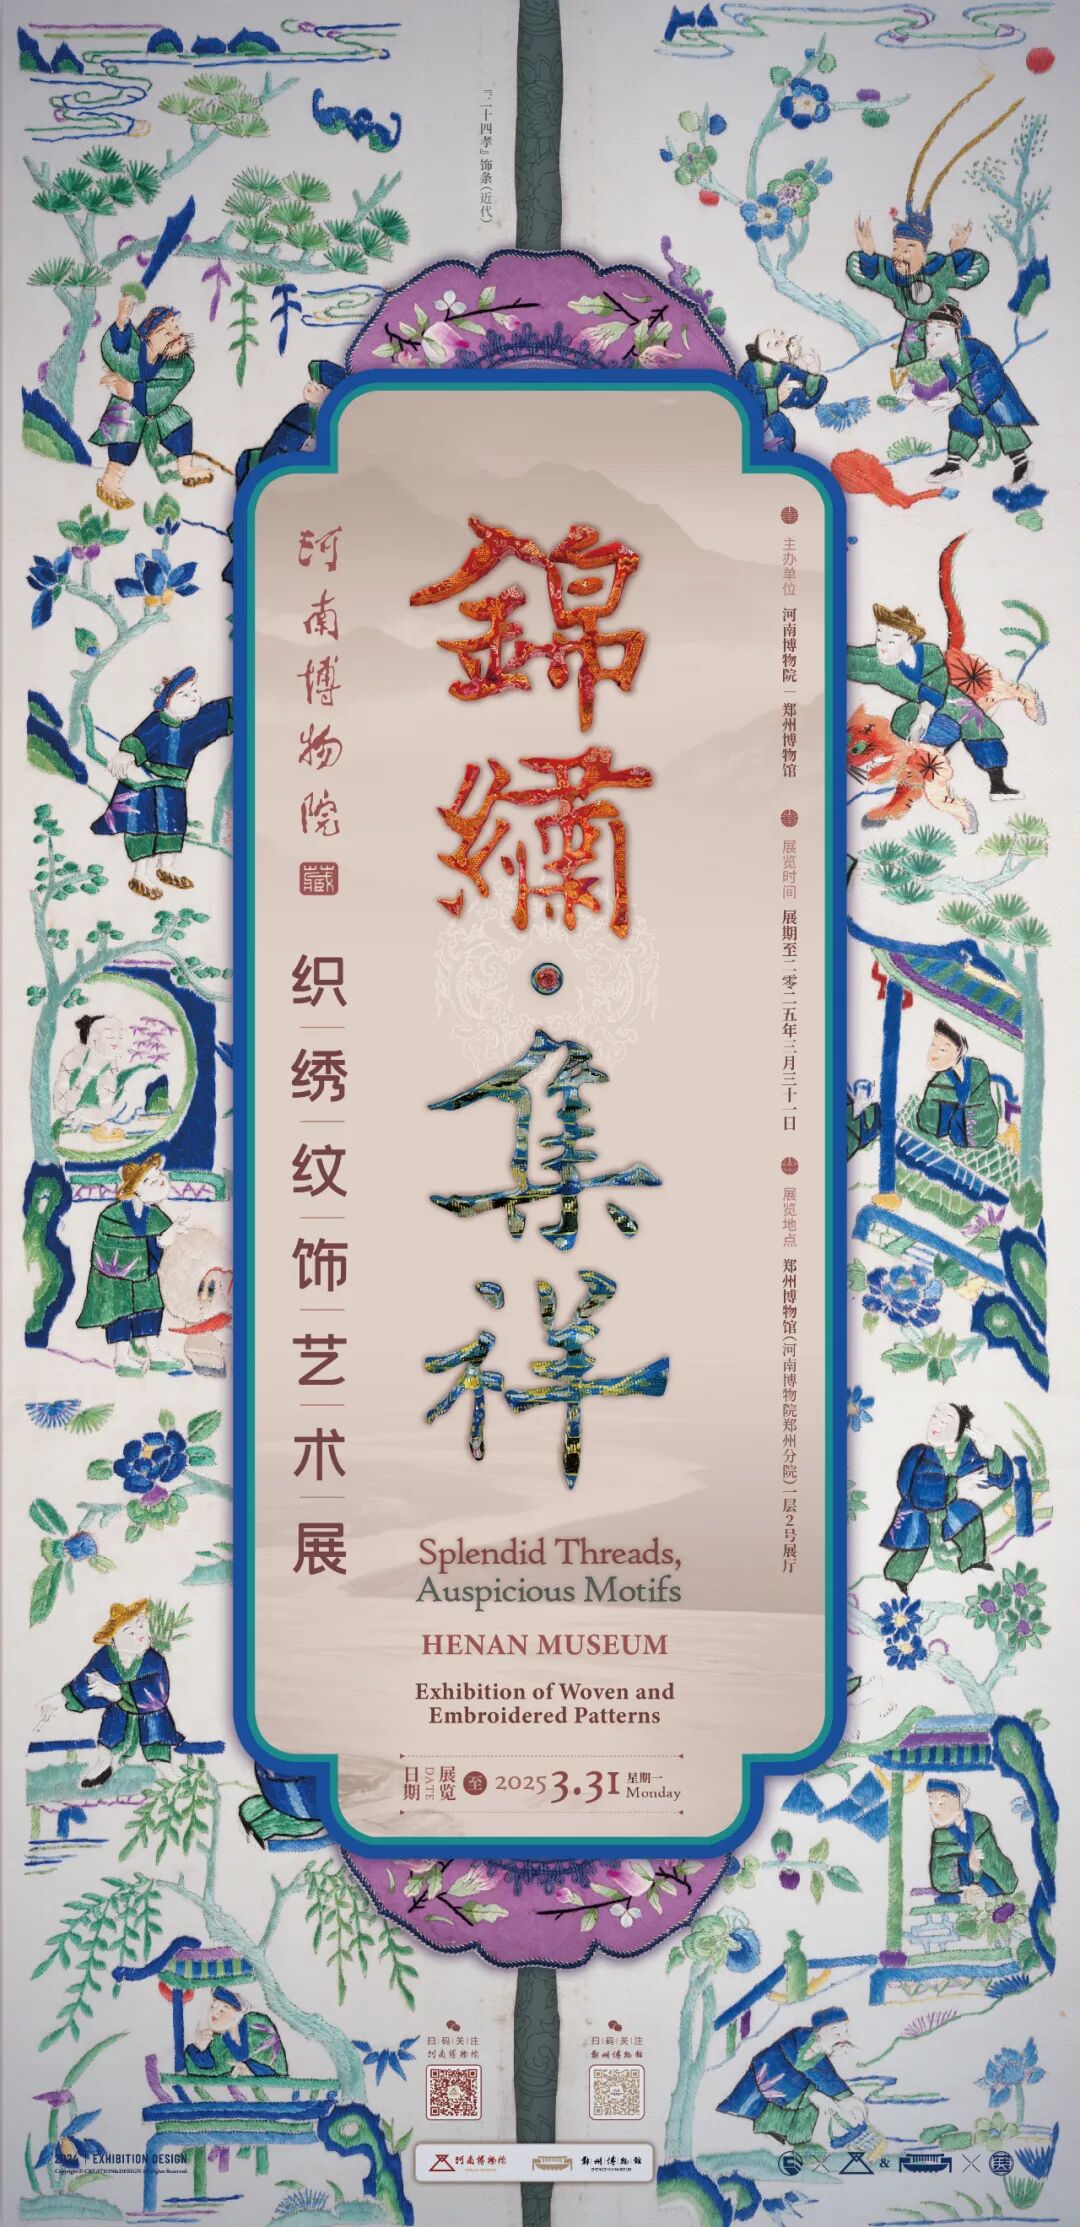 『二十四孝』饰条(近代)
錦繡·集祥
河南博物院 藏
织绣纹饰艺术展
主办单位 河南博物院 | 郑州博物馆
展览时间 展期至二零二五年三月三十一日
展览地点 郑州博物馆(河南博物院郑州分院)一层2号展厅
Splendid Threads,
Auspicious Motifs
HENAN MUSEUM
Exhibition of Woven and
Embroidered Patterns
展览日期 DATE 至 2025 3.31 星期一 Monday
扫码关注
河南博物院
扫码关注
郑州博物馆
2024 | EXHIBITION DESIGN
河南博物院
郑州博物馆